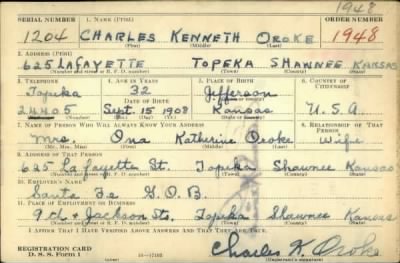 1948
SERIAL NUMBER 1. NAME (Print) ORDER NUMBER
1204 CHARLES KENNETH OROKE 1948
(First) (Middle) (Last)
2. ADDRESS (Print)
625 LAFAYETTE TOPEKA SHAWNEE KANSAS
(Number and street or R. F. D. number) (Town) (County) (State)
3. TELEPHONE 4. AGE IN YEARS 5. PLACE OF BIRTH 6. COUNTRY OF CITIZENSHIP
Topeka 32 Jefferson
DATE OF BIRTH
24405 Sept. 15 1908 Kansas U.S.A.
7. NAME OF PERSON WHO WILL ALWAYS KNOW YOUR ADDRESS 8. RELATIONSHIP OF THAT PERSON
Mrs. Ona Katherine Oroke Wife
(Mr., Mrs., Miss) (First) (Middle) (Last)
9. ADDRESS OF THAT PERSON
625 Lafayette St. Topeka Shawnee Kansas
(Number and street or R. F. D. number) (Town) (County) (State)
10. EMPLOYER'S NAME
Santa Fe G.O.B.
11. PLACE OF EMPLOYMENT OR BUSINESS
9th & Jackson Sts. Topeka Shawnee Kansas
(Number and street or R. F. D. number) (Town) (County) (State)
I AFFIRM THAT I HAVE VERIFIED ABOVE ANSWERS AND THAT THEY ARE TRUE.
REGISTRATION CARD
D. S. S. Form 1 Charles K. Oroke
(Registrant's signature)